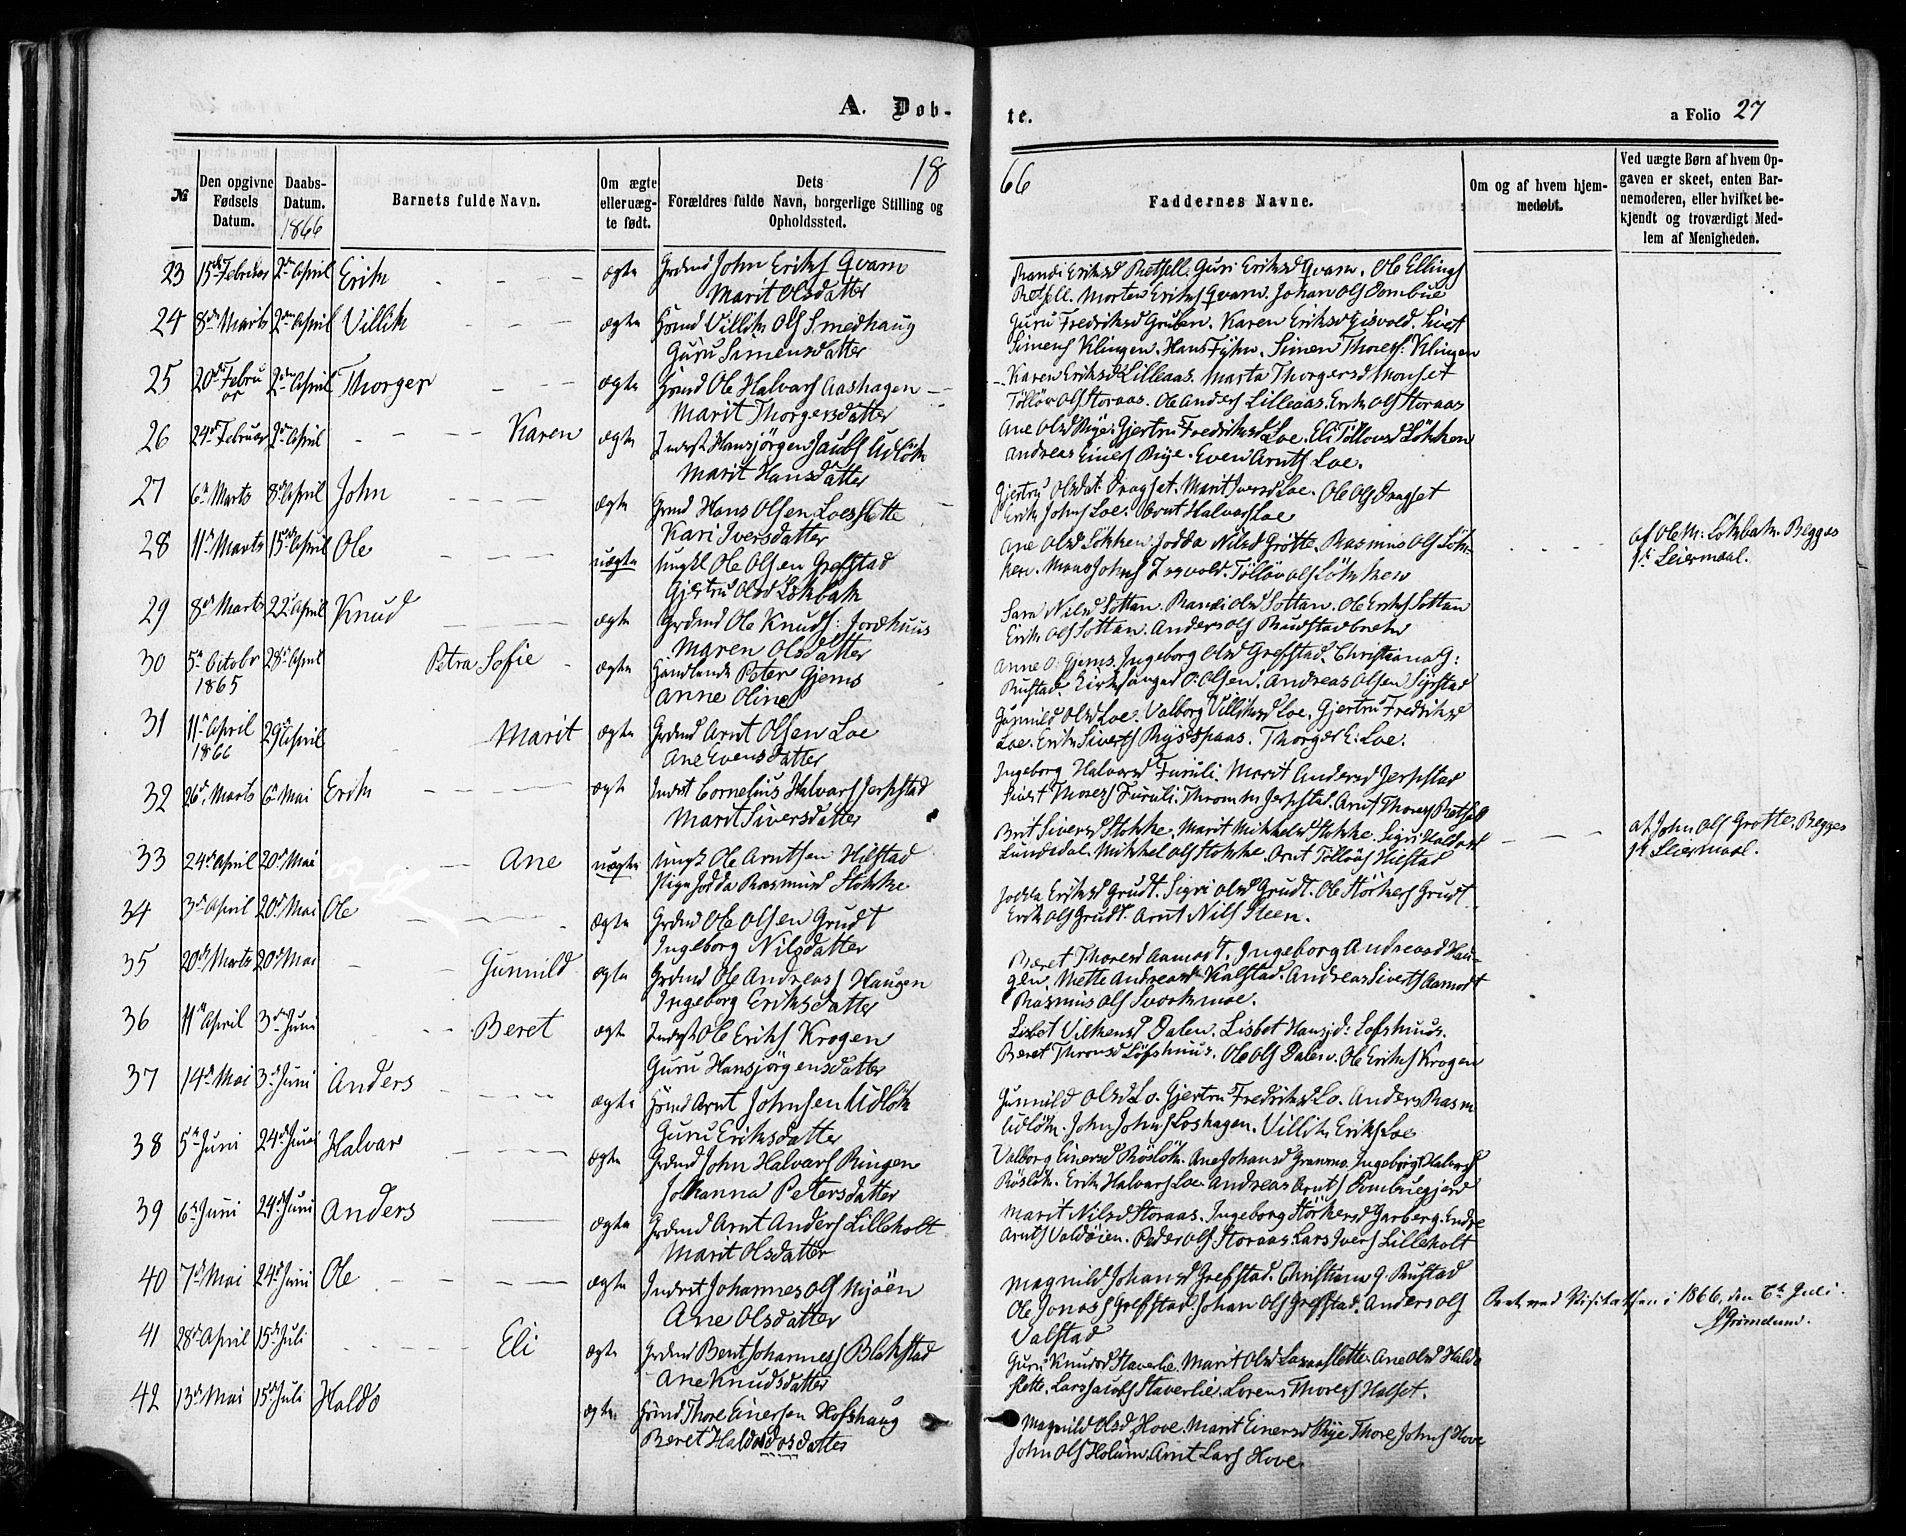 A. Døb-
te.
a Folio 27
18
66
№
Den opgivne Fødsels Datum.
Daabs-Datum. 1866
Barnets fulde Navn.
Om ægte eller uæg-te født.
Dets Forældres fulde Navn, borgerlige Stilling og Opholdssted.
Faddernes Navne.
Om og af hvem hjem-medøbt.
Ved uægte Børn af hvem Op-gaven er skeet, enten Bar-nemoderen, eller hvilket be-kjendt og troværdigt Med-lem af Menigheden.
23 15de Februar 2den April Erik ægte Grdmd John Eriks Qvam
Marit Olsdatter
Randi Eriksd Retsell. Guri Eriksd Qvam. Ole Ellings
Retsell. Morten Eriks Qvam. Johan Ols Dombue
24 8de Marts 2den April Villik ægte Hsmd Villik Ols Smedhaug
Guru Simensdatter
Guru Fredriksd Gruben. Karen Eriksd Gisvold. Sivert
Simens Klingen. Hans Fyhn. Simen Thores: Klingen
25 20de Februar 2den April Thorger ægte Hsmd Ole Halvars Aashagen
Marit Thorgersdatter
Karen Eriksd Lilleaas. Marta Thorgersd Monset
Tølløv Ols Storaas. Ole Anders Lilleaas. Erik Ols Storaas
26 24de Februar 2den April Karen ægte Inderst Hansjörgen Jacobs Udløk
Marit Hansdatter
Ane Olsd Rye. Gjertru Fredriksd Loe. Eli Tölløvsd Løkken
Andreas Einers Rye. Even Arnts Loe.
27 6te Marts 8de April John ægte Grmd Hans Olsen Loeslette
Kari Iversdatter
Gjertru Olsdat: Dragset. Marit Iversd Loe. Ole Ols Dragset
Erik Johns Loe. Arnt Halvars Loe
28 11te Marts 15de April Ole uægte Ungkl Ole Olsen Grefstad
Gjertru Olsd Løkbak
Ane Olsd Løkken. Jodda Nilsd Grötte. Rasmus Ols Løk-
ken. Mons Johns Togvold. Tølløv Ols Løkken
af Ole M: Løkbak. Begges
1ste Leiermaal.
29 8de Marts 22de April Knud ægte Grdmd Ole Knuds: Jordhuus
Maren Olsdatter
Sara Nilsd Sottan. Randi Olsd Sottan. Ole Eriks Sottan
Erik Ols Sottan. Anders Ols Rudstad
30 5te Octobr 1865 28de April Petra Sofie ægte Handlende Peter Gjems
Anne Oline
Anne O: Gjems. Ingeborg Olsd Grefstad. Christiana G:
Rustad. Kirksånger O: Olsen. Andreas Olsen Syrstad
31 11te April 1866 29de April Marit ægte Grdmd Arnt Olsen Loe
Ane Evensdatter
Gunnild Olsd Loe. Valborg Villiksd Loe. Gjertru Fredriksd
Loe. Erik Siverts Ryssplaas. Thorger E: Loe.
32 26de Marts 6te Mai Erik ægte Inderst Cornelius Halvars Jerpstad
Marit Siversdatter
Ingeborg Halvarsd Furuli. Marit Andersd Jerpstad
Sivert Thores Furuli. Thron M Jerpstad. Arnt Thores Retsell
33 24de April 20de Mai Ane uægte Ungk Ole Arntsen Hilstad
Pige Jodda Rasmusd Stokke
Brit Siversd Stokke. Marit Mikkelsd Stokke. Sigri Haldosd
Lundsdal. Mikkel Ols Stokke. Arnt Tölløvs Hilstad
af John Ols Grötte. Begges
1ste Leiermaal.
34 3de April 20de Mai Ole ægte Grdmd Ole Olsen Grudt
Ingeborg Nilsdatter
Jodda Eriksd Grudt. Sigri Olsd Grudt. Ole Störkers Grudt
Erik Ols Grudt. Arnt Nils Steen.
35 20de Marts 20de Mai Gunnild ægte Grdmd Ole Andreas Haugen
Ingeborg Eriksdatter
Beret Thoresd Aamodt. Ingeborg Andreasd Hau-
gen. Mette Andreasd Kalstad. Andreas Siverts Aamodt
Rasmus Ols Svorkmoe.
36 11te April 3de Juni Beret ægte Inderst Ole Eriks Krogen
Guru Hansjörgensdatter
Lisbet Vilkensd Dalen. Lisbet Hansjd: Lofshuus.
Beret Thronsd Løfshuus. Ole Ols Dalen. Ole Eriks Krogen
37 14de Mai 3de Juni Anders ægte Hsmd Arnt Johnsen Udløk
Guru Eriksdatter
Gunnild Olsd Lo. Gjertru Fredriksd Lo. Anders Rasm
Udløk. John Johns Loshagen. Villik Eriks Loe
38 5te Juni 24de Juni Halvar ægte Grdmd John Halvars Ringen
Johanna Petersdatter
Valborg Einersd Røsløk. Ane Johansd Grammo. Ingeborg Halvarsd
Røsløk. Erik Halvars Loe. Andreas Arnts
39 6te Juni 24de Juni Anders ægte Grdmd Arnt Anders Lilleholt
Marit Olsdatter
Marit Nilsd Storaas. Ingeborg Störkersd Garberg. Endre
Arnts Valdøien. Peder Ols Storaas. Lars Ivers Lilleholt
40 7de Mai 24de Juni Ole ægte Inderst Johannes Ols Mjøen
Ane Olsdatter
Magnild Johansd Grefstad. Christiana G. Rustad
Ole Jonas Grefstad. Johan Ols Grefstad. Anders Ols
Valstad
Seet ved Visitatsen i 1866, den 6te Juli.
Grimelund.
41 28de April 15de Juli Eli ægte Grdmd Bent Johannes Blokstad
Ane Knudsdatter
Guru Knudsd Staverlie. Marit Olsd Laxaaslette. Ane Olsd Haldo
slette. Lars Jacobs Staverlie. Lorens Thores Halset.
42 13de Mai 15de Juli Haldo ægte Hsmd Thore Einersen Hofshaug
Beret Haldosdatter
Magnild Olsd Hove. Marit Einersd Rye. Thore Johns Hove
John Ols Holum. Arnt Lars Hove.